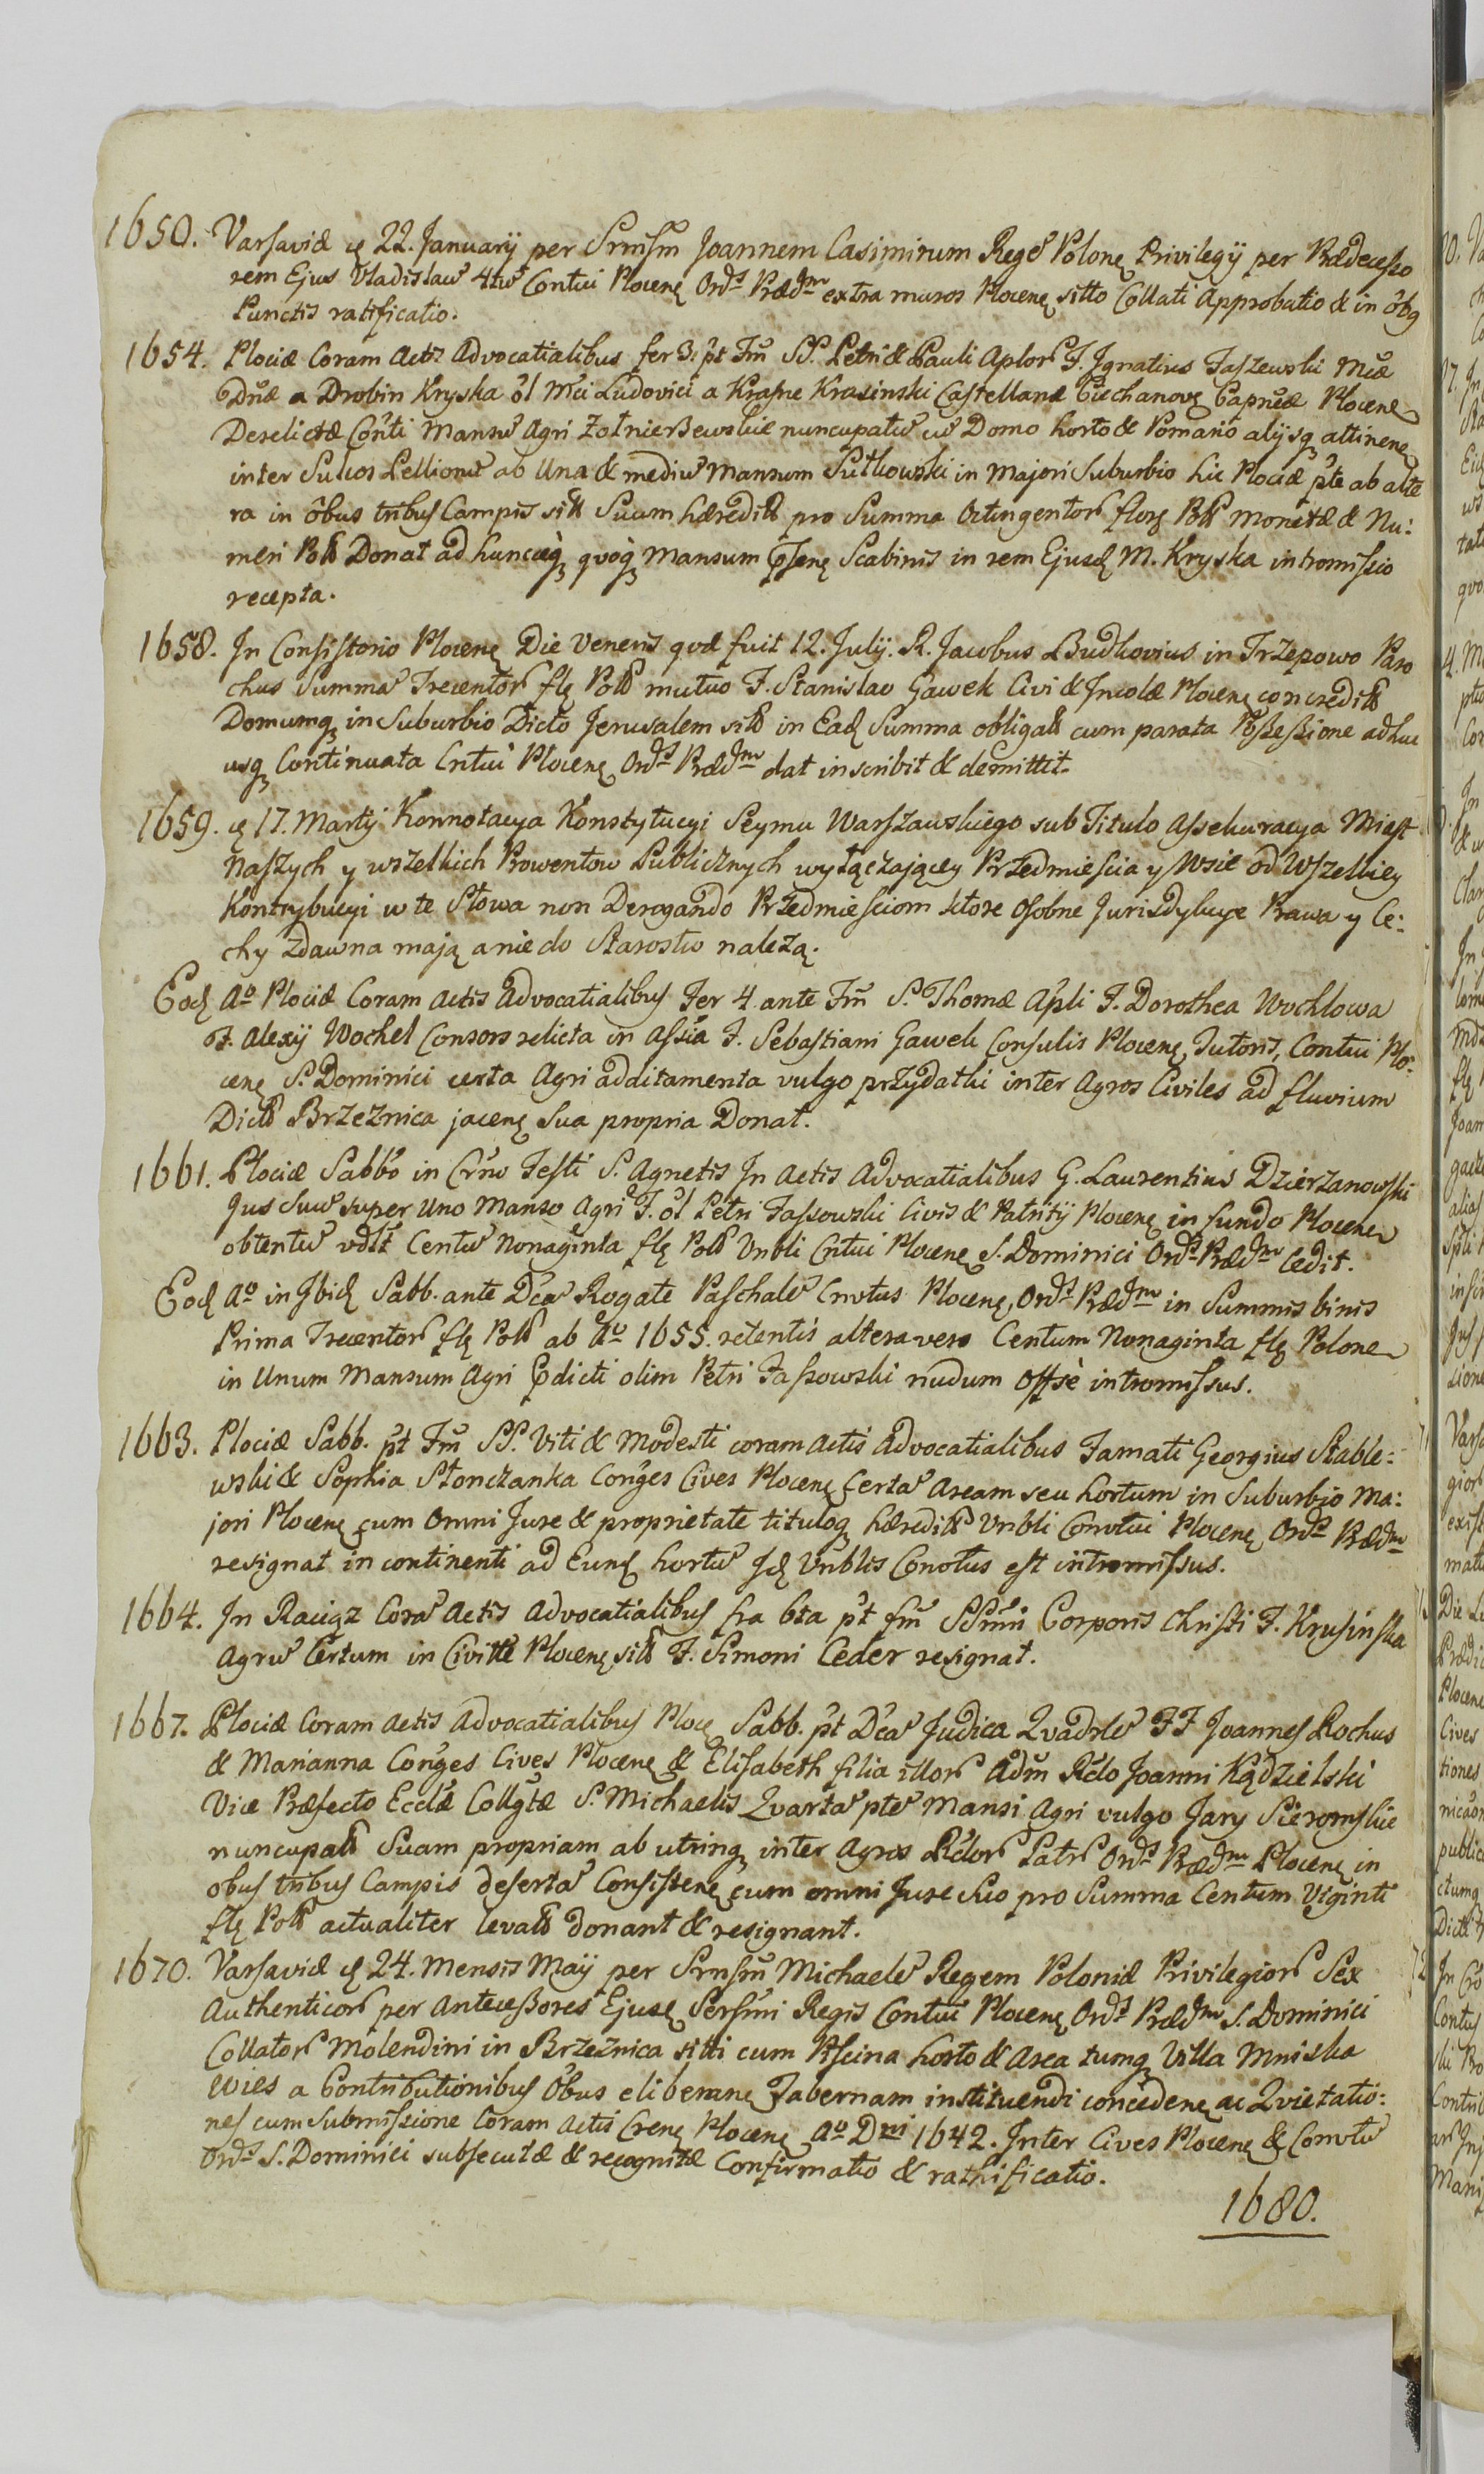 1650. Varsaviæ ę 22. Januarÿ per Srmsm̃ Joannem Casimirum Rege Polonę Privilegÿ per Prædecesso
rem Ejus Vladislaw 4tw Contui Plocenę Ords Prædm extra muros Plocenę sitto Collati Approbatio & in obq
Punctis ratificatio.
1654. Plociæ Coram Actz Advocatialibus fer 3. pt Fm̃ SS. Petri & Pauli Aplor F. Ignatius Faszewski Mcæ
Dnæ a Drobin Kryska ol Mci Ludovici a Krasne Krasinski Castellanæ Ciechanovę Capneæ Plocenę
Derelictæ Conti Mansw Agri Żołnierzewskie nuncupatw cw Domo horto & Pomario alijsq attinenę
inter Sulcos Pellionw ab Una & mediw Mansum Sutkowski in Majori Suburbio hic Plociæ pte ab alte
ra in obus tribus Campis sitt Suum hæreditt pro Summa Octingentor flor Poll Monetæ & Nu:
meri Poll Donat ad huncq quoq Mansum psenę Scabinis in rem Ejusd M. Kryska intromissio
recepta.
1658. In Consistorio Plocenę Die Veneris qvæ fuit 12. July. R. Jacobus Budkovius in Trzepowo Paro
chus Summa Trecentor flę Poll mutuo F. Stanislao Gawek Civi & Incolæ Plocenę concreditt
Domumq in Suburbio Dicto Jerusalem sitt in Eadę Summa obligatt cum parata Possessione adhuc
usq Continuata Cntui Plocenę Ords Prædm dat inscribit & demittit.
1659. ę 17. Martÿ Konnotacya Konstytucyi Seymu Warszawskiego sub Titulo Assekuracya Miast
Naszych y wszelkich Prowentow Publicznych wyłączaiącey Przedmiescia y Wsie od Wszelkiey
Kontrybucyi w te Słowa non Derogando Przedmiesciom ktore Osobne Jurisdykcye Prawa y Ce:
chy zdawna mają a nie do Starostw nalezą.
Eodę Ao Plociæ Coram Actis Advocatialibus Fer 4. ante Fm̃ S. Thomæ Apli F. Dorothea Wochlowa
F. Alexÿ Wochel Consors relicta in Assia F. Sebastiani Gawek Consulis Plocenę Tutoris, Contui Plo:
cenę S. Dominici certa Agri additamenta vulgo przydatki inter Agros Civiles ad fluvium
Dictt Brzeznica jacenę Sua propria Donat.
1661. Plociæ Sabbo in Crno Festi S. Agnetis In Actis Advocatialibus G. Laurentius Dzierzanowski
Jus Suw super Uno Manso Agri F. ol Petri Fassowski Civis & Patritÿ Plocenę in fundo Plocenę
obtentw vdlt Centw Nonaginta flę Poll Vnbli Cntui Plocenę S. Dominici Ords Prædm Cedit.
Eodę Ao in Ibidę Sabb. ante Dca Rogate Paschale Cnvtus Plocenę, Ords Prædm in Summis binis
Prima Trecentor flę Poll ab Ao 1655. retentis altera vero Centum Nonaginta flę Polonę
in Unum Mansum Agri Pdicti olim Petri Fassowski nudum Offse intromissus.
1663. Plociæ Sabb. pt Fm̃ SS. Viti & Modesti coram Actis Advocatialibus Famati Georgius Stable-
wski & Sophia Słonczanka Conges Cives Plocenę certa Aream seu hortum in Suburbio Ma:
jori Plocenę cum Omni Jure & proprietate tituloq hæreditt Vnbli Convtui Plocenę Ords Prædm
resignat in continenti ad Eundę hortw Idę Vnblis Cenvtus est intromissus.
1664. In Raciąz Cora Actis Advocatialibus fra 6ta pt fm̃ SSimi Corporis Christi F. Krusinska
Agrw Certum in Civitte Plocenę sitt F. Simoni Ceder resignat.
1667. Plociæ Coram Actis Advocatialibus Plocę Sabb. pt Dca Judica Qvadrle FF Joannes Rochus
& Marianna Conges Cives Plocenę & Elisabeth filia illor Adm̃ Rdo Joanni Kądzielski
Vice Præfecto Eccłæ Collgtæ S. Michaelis Qvarta pte Mansi Agri vulgo Jary Sieromskie
nuncupatt Suam propriam ab utrinq inter Agros Rdor Patr Ords Prædm Plocenę in
obus tribus Campis deserta Consistenę cum omni Jure Suo pro Summa Centum Viginti
flę Poll actualiter levatt donant & resignant.
1670. Varsaviæ ę 24. Mensis Maÿ per Srmsm̃ Michaele Regem Poloniæ Privilegior Sex
Authenticor per Antecessores Ejusdę Sersmi Regis Contui Plocenę Ords Prædm S. Dominici
Collator Molendini in Brzeznica sitti cum Piscina horto & Area tumq Villa Mniska
Wies a Contributionibus Obus eliberanę Tabernam instituendi concedenę ac Qvietatio:
nes cum Submissione Coram Actis Crenę Plocenę Ao Dni 1642. Inter Cives Plocenę & Convtw
Ords S. Dominici subsecutæ & recognitæ Confirmatio & rathificatio.
1680.